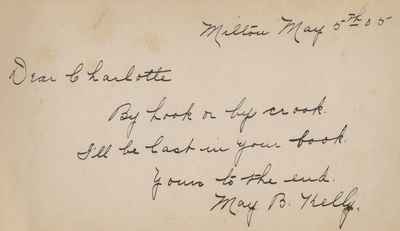 Milton May 5th 05
Dear Charlotte
By hook or by crook.
I'll be last in your book.
Yours to the end.
May B. Kelly.